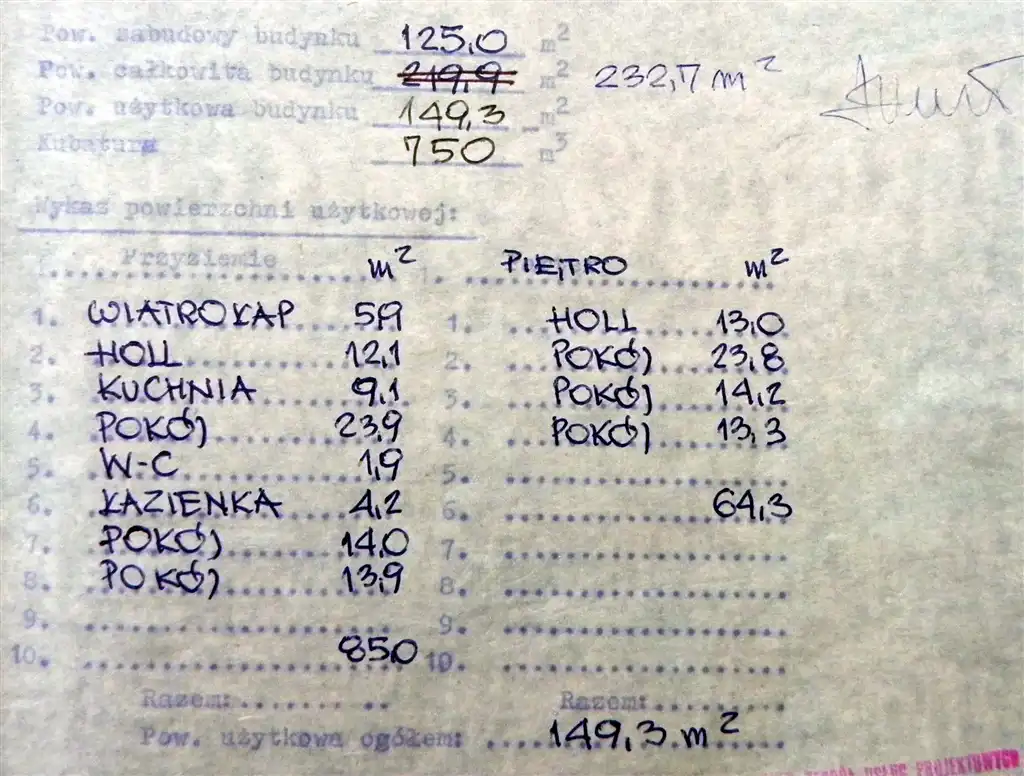 Pow. zabudowy budynku 125,0 m²
Pow. całkowita budynku 219,9 m² 232,7 m²
Pow. użytkowa budynku 149,3 m²
Kubatura 750 m³
Wykaz powierzchni użytkowej:
Przyziemie m²
1. WIATROŁAP 5,9
2. HOLL 12,1
3. KUCHNIA 9,1
4. POKÓJ 23,9
5. W-C 1,9
6. ŁAZIENKA 4,2
7. POKÓJ 14,0
8. POKÓJ 13,9
9.
10. 85,0
Razem:
1. PIĘTRO m²
1. HOLL 13,0
2. POKÓJ 23,8
3. POKÓJ 14,2
4. POKÓJ 13,3
5.
6. 64,3
7.
8.
9.
10.
Razem:
Pow. użytkowa ogółem: 149,3 m²
USŁUG PROJEKTOWYCH